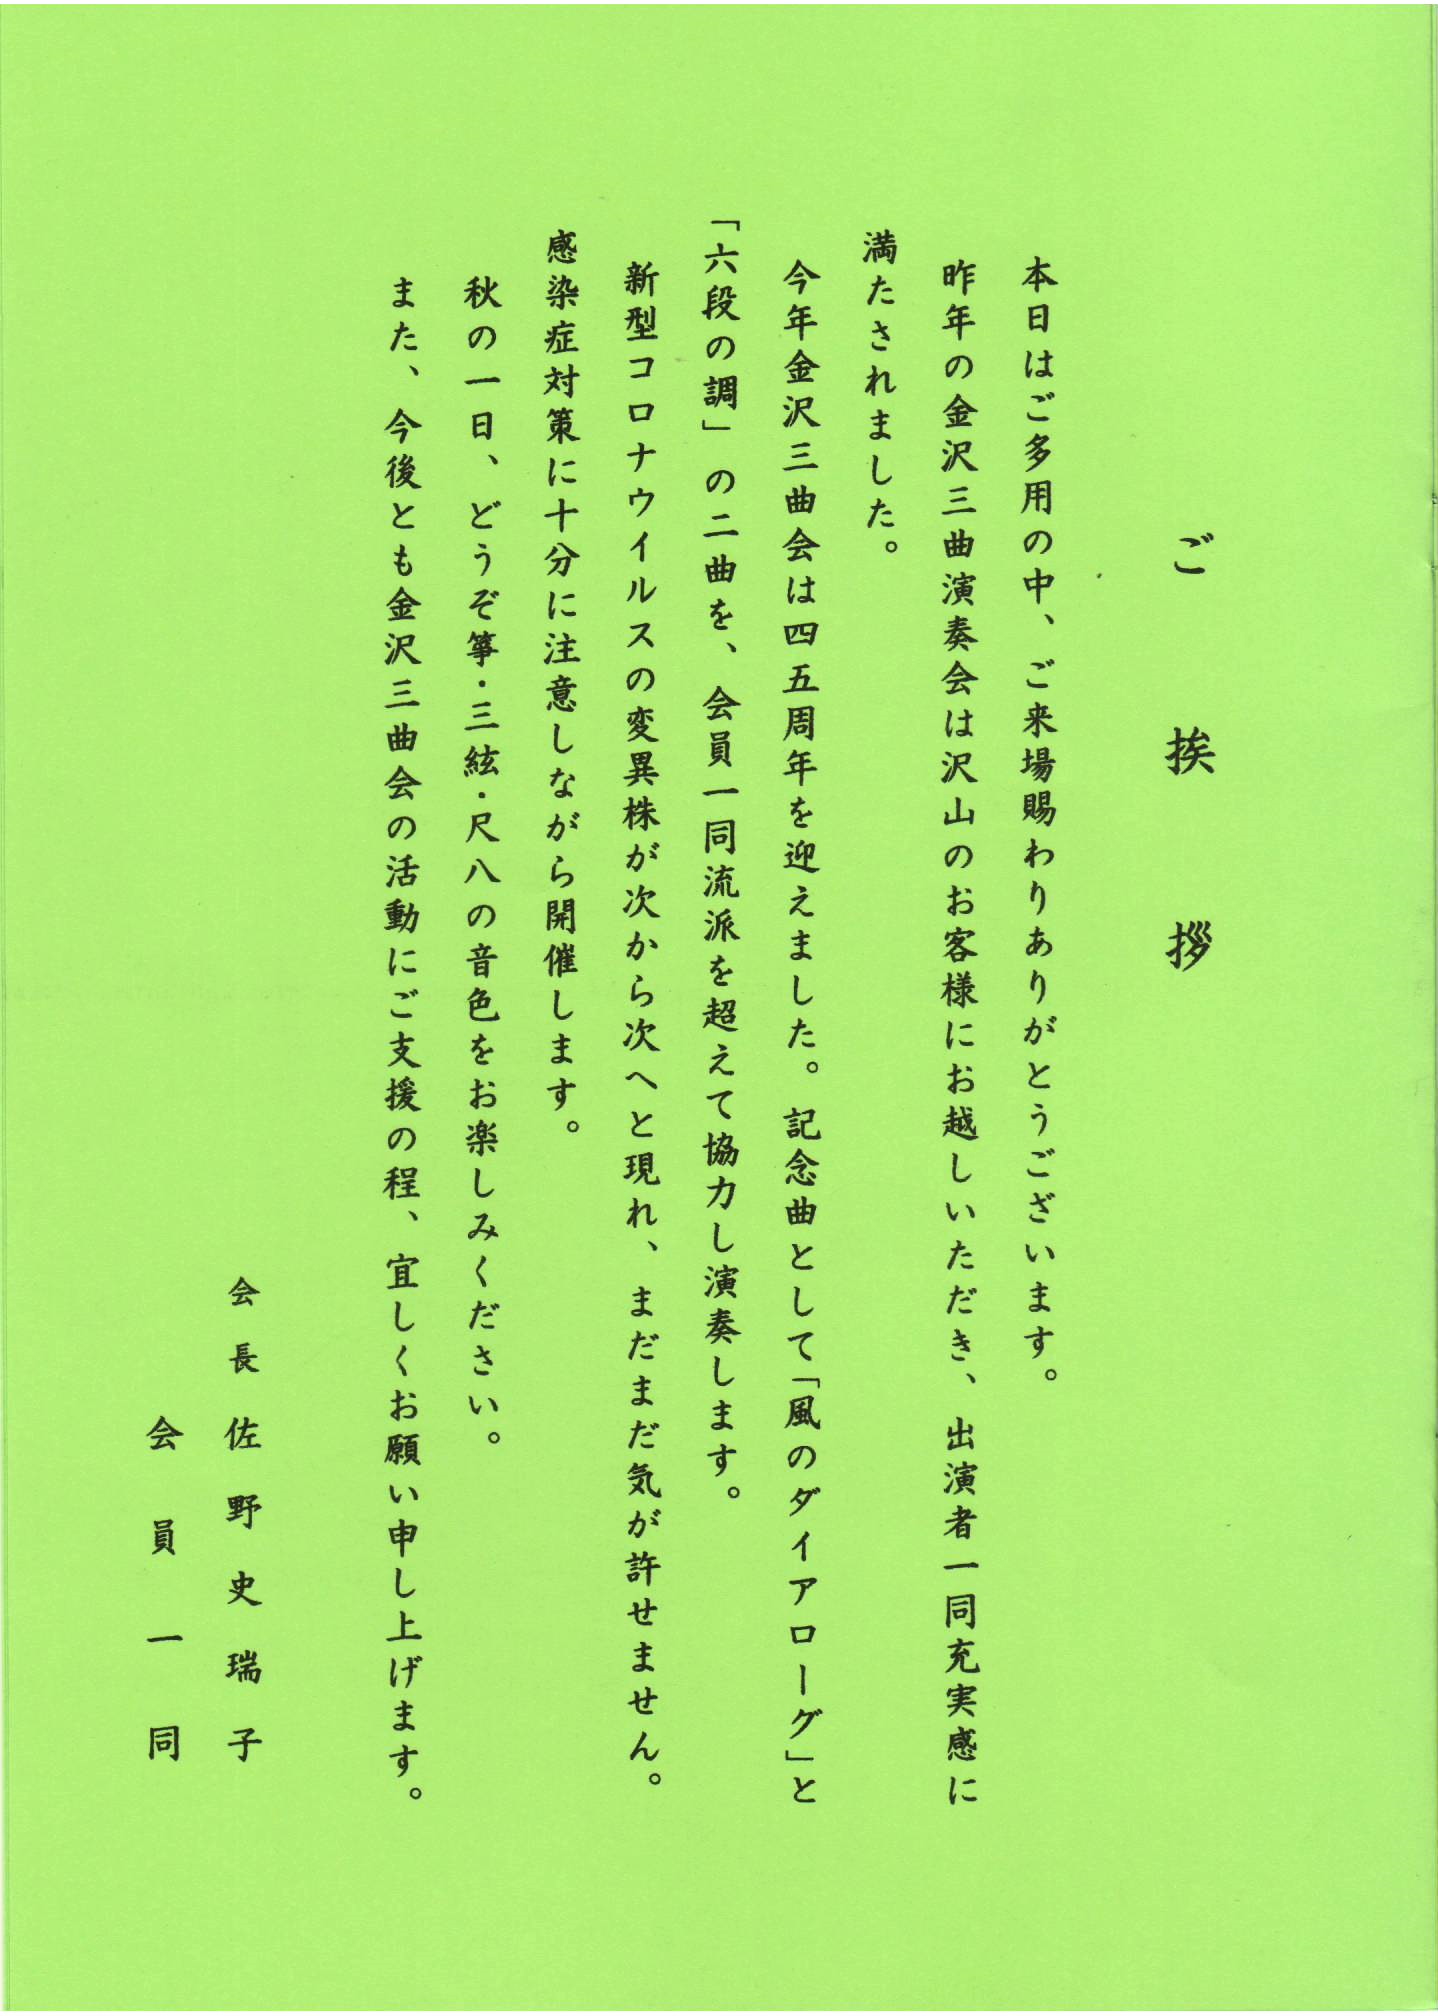 ご挨拶
本日はご多用の中、ご来場賜わりありがとうございます。
昨年の金沢三曲演奏会は沢山のお客様にお越しいただき、出演者一同充実感に
満たされました。
今年金沢三曲会は四五周年を迎えました。記念曲として「風のダイアローグ」と
「六段の調」の二曲を、会員一同流派を超えて協力し演奏します。
新型コロナウイルスの変異株が次から次へと現れ、まだまだ気が許せません。
感染症対策に十分に注意しながら開催します。
秋の一日、どうぞ箏・三絃・尺八の音色をお楽しみください。
また、今後とも金沢三曲会の活動にご支援の程、宜しくお願い申し上げます。
会長 佐野史瑞子
会員一同